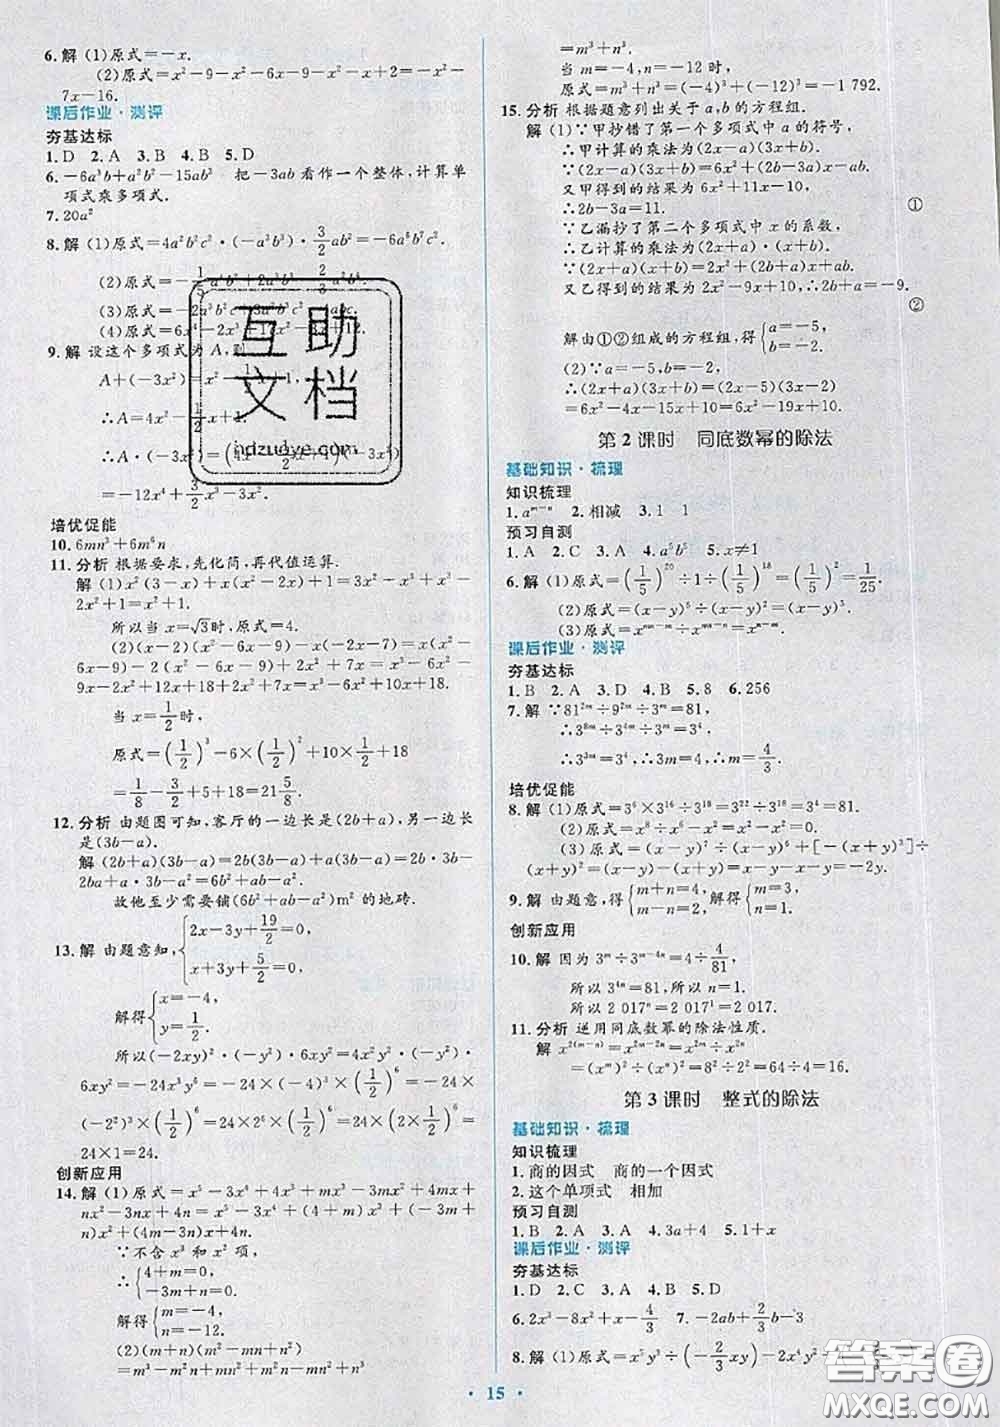 6.解 (1)原式=-x.
(2)原式=x²-9-x²-6x-9-x²-x+2=-x²-
7x-16.
课后作业·测评
夯基达标
1.D 2.A 3.B 4.B 5.D
6.-6a³b+a²b²-15ab² 把-3ab看作一个整体,计算单
项式乘多项式.
7.20a²
8.解 (1)原式=4a²b²c²·(-a³b³)·3/2ab²=-6a⁶b⁷c².
(3)原式=
(4)原式=6x⁴-2x³
9.解 设这个多项式为A,则
A+(-3x²)=x²-
∴A=4x²-1/2x+1.
∴A·(-3x²)=
=-12x⁴+3/2x³-3x².
培优促能
10.6mn³+6m⁶n
11.分析 根据要求,先化简,再代值运算.
解 (1)x²(3-x)+x(x²-2x)+1=3x²-x³+x³-
2x²+1=x²+1.
所以当x=√3时,原式=4.
(2)(x-2)(x²-6x-9)-x(x²-2x-
6x-9)-2(x²-6x-9)
9x-2x²+12x+18+2x²+7x=x³-6x²+10x+18.
当x=1/2时,
原式=(1/2)³-6×(1/2)²+10×1/2+18
=1/8-3/2+5+18=21 5/8.
12.分析 由题图可知,客厅的一边长是(2b+a),另一边长
是(3b-a).
解 (2b+a)(3b-a)=2b(3b-a)+a(3b-a)=2b·3b-
2ba+a·3b-a²=6b²+ab-a².
故他至少需要铺(6b²+ab-a²)m²的地砖.
13.解 由题意知,{2x-3y+19/2=0,
x+3y+5/2=0,
解得{x=-4,
y=1/2.
所以(-2xy)²·(-y²)·6xy²=4x²y²·(-y²)·
6xy²=-24x³y⁶=-24×(-4)³×(1/2)⁶=-24×
(-4³)×(1/2)⁶=24×2⁶×(1/2)⁶=24×(2×1/2)⁶=
24×1=24.
创新应用
14.解 (1)原式=x⁵-3x⁴+4x³+mx³-3mx²+4mx+
nx²-3nx+4n=x⁵-3x⁴+(4+m)x³+(-3m+
n)x²+(4m-3n)x+4n.
∵不含x³和x²项,
∴{4+m=0,
-3m+n=0,
解得{m=-4,
n=-12.
(2)(m+n)(m²-mn+n²)
=m³-m²n+mn²+m²n-mn²+n³
=m³+n³.
当m=-4,n=-12时,
原式=(-4)³+(-12)³=-1 792.
15.分析 根据题意列出关于a,b的方程组.
解 (1)∵甲抄错了第一个多项式中a的符号,
∴甲计算的乘法为(2x-a)(3x+b).
∵(2x-a)(3x+b)=6x²+(2b-3a)x-ab.
又甲得到的结果为6x²+11x-10,
∴2b-3a=11. ①
∵乙漏抄了第二个多项式中x的系数,
∴乙计算的乘法为(2x+a)(x+b).
∵(2x+a)(x+b)=2x²+(2b+a)x+ab.
又乙得到的结果为2x²-9x+10,∴2b+a=-9.
②
解由①②组成的方程组,得{a=-5,
b=-2.
(2)∵a=-5,b=-2,
∴(2x+a)(3x+b)=(2x-5)(3x-2)
=6x²-4x-15x+10=6x²-19x+10.
第2课时 同底数幂的除法
基础知识·梳理
知识梳理
1.aᵐ⁻ⁿ 2.相减 3.1 1
预习自测
1.A 2.C 3.A 4.a⁵b⁵ 5.x≠1
6.解 (1)原式=(1/5)²⁰÷1÷(1/5)¹⁸=(1/5)²=1/25.
(2)原式=(x-y)⁵÷(x-y)²=(x-y)³.
课后作业·测评
夯基达标
1.B 2.A 3.D 4.B 5.8 6.256
7.解 ∵81²ᵐ÷9²ᵐ÷3ᵐ=81,
∴3⁸ᵐ÷3⁴ᵐ÷3ᵐ=3⁴.
∴3³ᵐ=3⁴,∴3m=4,∴m=4/3.
培优促能
8.解 (1)原式=3⁶×3¹⁶÷3¹⁸=3²²÷3¹⁸=3⁴=81.
(2)原式=x⁸÷x⁶·x²=x²·x²=x⁴.
(3)原式=(x-y)⁷÷(x-y)⁶+[-(x+y)³]÷
(x+y)²=(x-y)-(x+y)=x-y-x-y=-2y.
9.解 由题意,得{m+n=4, 解得{m=3,
m-n=2. n=1.
创新应用
10.解 因为3ᵐ÷3ᵐ⁻⁴ⁿ=4÷4/81,
所以3⁴ⁿ=81,所以n=1.
所以2 017ⁿ=2 017¹=2 017.
11.分析 逆用同底数幂的除法性质.
解 x²⁽ᵐ⁻ⁿ⁾=x²ᵐ⁻²ⁿ=x²ᵐ÷x²ⁿ
=(xᵐ)²÷(xⁿ)²=8²÷2²=64÷4=16.
第3课时 整式的除法
基础知识·梳理
知识梳理
1.商的因式 商的一个因式
2.这个单项式 相加
预习自测
1.B 2.A 3.A 4.3a+4 5.1+x
课后作业·测评
夯基达标
1.D 2.C 3.A 4.B 5.D
6.2x³-8x²+x-4/3 7.-2ab+2/3b-3
8.解 (1)原式=x⁵y³÷(-2/3xy)-2x⁴y²÷
· 15 ·
互助
文档
hdzuoye.com
答案圈
MXQE.COM